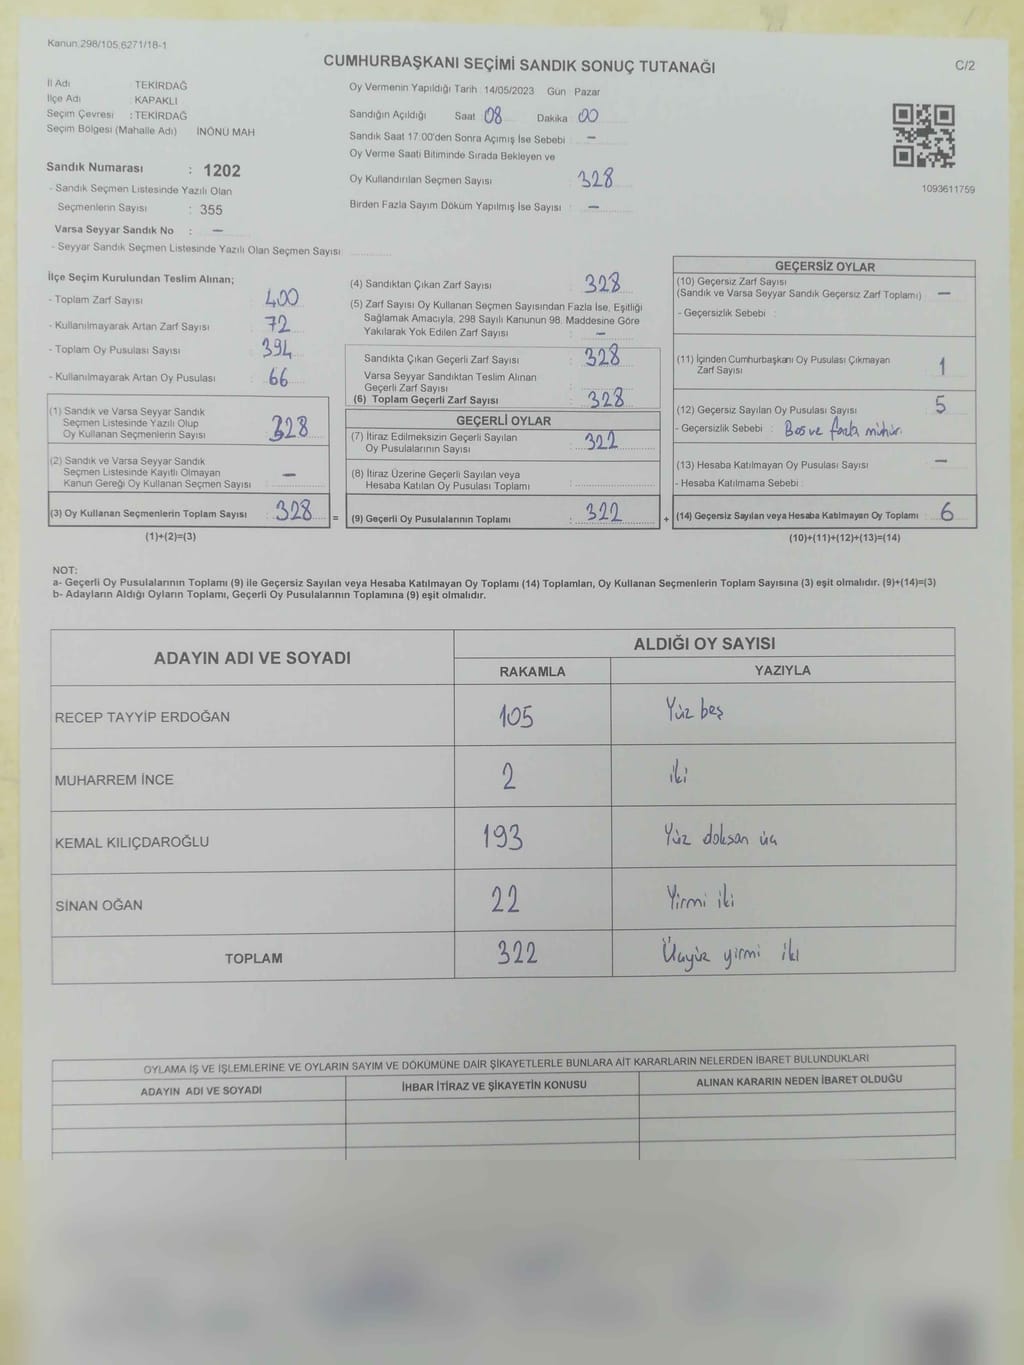 Kanun.298/105.6271/18-1
CUMHURBAŞKANI SEÇİMİ SANDIK SONUÇ TUTANAĞI
C/2
İl Adı : TEKİRDAĞ
İlçe Adı : KAPAKLI
Seçim Çevresi : TEKİRDAĞ
Seçim Bölgesi (Mahalle Adı) İNÖNÜ MAH
Sandık Numarası : 1202
- Sandık Seçmen Listesinde Yazılı Olan
Seçmenlerin Sayısı : 355
Varsa Seyyar Sandık No : –
- Seyyar Sandık Seçmen Listesinde Yazılı Olan Seçmen Sayısı
Oy Vermenin Yapıldığı Tarih : 14/05/2023 Gün : Pazar
Sandığın Açıldığı Saat 08 Dakika 00
Sandık Saat 17:00'den Sonra Açımış İse Sebebi : –
Oy Verme Saati Bitiminde Sırada Bekleyen ve
Oy Kullandırılan Seçmen Sayısı : 328
Birden Fazla Sayım Döküm Yapılmış İse Sayısı : –
1093611759
İlçe Seçim Kurulundan Teslim Alınan;
- Toplam Zarf Sayısı : 400
- Kullanılmayarak Artan Zarf Sayısı : 72
- Toplam Oy Pusulası Sayısı : 394
- Kullanılmayarak Artan Oy Pusulası : 66
(1) Sandık ve Varsa Seyyar Sandık
Seçmen Listesinde Yazılı Olup
Oy Kullanan Seçmenlerin Sayısı : 328
(2) Sandık ve Varsa Seyyar Sandık
Seçmen Listesinde Kayıtlı Olmayan
Kanun Gereği Oy Kullanan Seçmen Sayısı : –
(3) Oy Kullanan Seçmenlerin Toplam Sayısı : 328
(1)+(2)=(3)
(4) Sandıktan Çıkan Zarf Sayısı : 328
(5) Zarf Sayısı Oy Kullanan Seçmen Sayısından Fazla İse, Eşitliği
Sağlamak Amacıyla, 298 Sayılı Kanunun 98. Maddesine Göre
Yakılarak Yok Edilen Zarf Sayısı : –
Sandıkta Çıkan Geçerli Zarf Sayısı : 328
Varsa Seyyar Sandıktan Teslim Alınan
Geçerli Zarf Sayısı :
(6) Toplam Geçerli Zarf Sayısı : 328
GEÇERLİ OYLAR
(7) İtiraz Edilmeksizin Geçerli Sayılan
Oy Pusulalarının Sayısı : 322
(8) İtiraz Üzerine Geçerli Sayılan veya
Hesaba Katılan Oy Pusulası Toplamı :
= (9) Geçerli Oy Pusulalarının Toplamı : 322
GEÇERSİZ OYLAR
(10) Geçersiz Zarf Sayısı
(Sandık ve Varsa Seyyar Sandık Geçersiz Zarf Toplamı) : –
- Geçersizlik Sebebi :
(11) İçinden Cumhurbaşkanı Oy Pusulası Çıkmayan
Zarf Sayısı : 1
(12) Geçersiz Sayılan Oy Pusulası Sayısı : 5
- Geçersizlik Sebebi : Boş ve fazla mühür.
(13) Hesaba Katılmayan Oy Pusulası Sayısı : –
- Hesaba Katılmama Sebebi :
+ (14) Geçersiz Sayılan veya Hesaba Katılmayan Oy Toplamı : 6
(10)+(11)+(12)+(13)=(14)
NOT:
a- Geçerli Oy Pusulalarının Toplamı (9) ile Geçersiz Sayılan veya Hesaba Katılmayan Oy Toplamı (14) Toplamları, Oy Kullanan Seçmenlerin Toplam Sayısına (3) eşit olmalıdır. (9)+(14)=(3)
b- Adayların Aldığı Oyların Toplamı, Geçerli Oy Pusulalarının Toplamına (9) eşit olmalıdır.
ADAYIN ADI VE SOYADI
ALDIĞI OY SAYISI
RAKAMLA YAZIYLA
RECEP TAYYİP ERDOĞAN 105 Yüz beş
MUHARREM İNCE 2 iki
KEMAL KILIÇDAROĞLU 193 Yüz doksan üç
SİNAN OĞAN 22 Yirmi iki
TOPLAM 322 Üçyüz yirmi iki
OYLAMA İŞ VE İŞLEMLERİNE VE OYLARIN SAYIM VE DÖKÜMÜNE DAİR ŞİKAYETLERLE BUNLARA AİT KARARLARIN NELERDEN İBARET BULUNDUKLARI
ADAYIN ADI VE SOYADI İHBAR İTİRAZ VE ŞİKAYETİN KONUSU ALINAN KARARIN NEDEN İBARET OLDUĞU